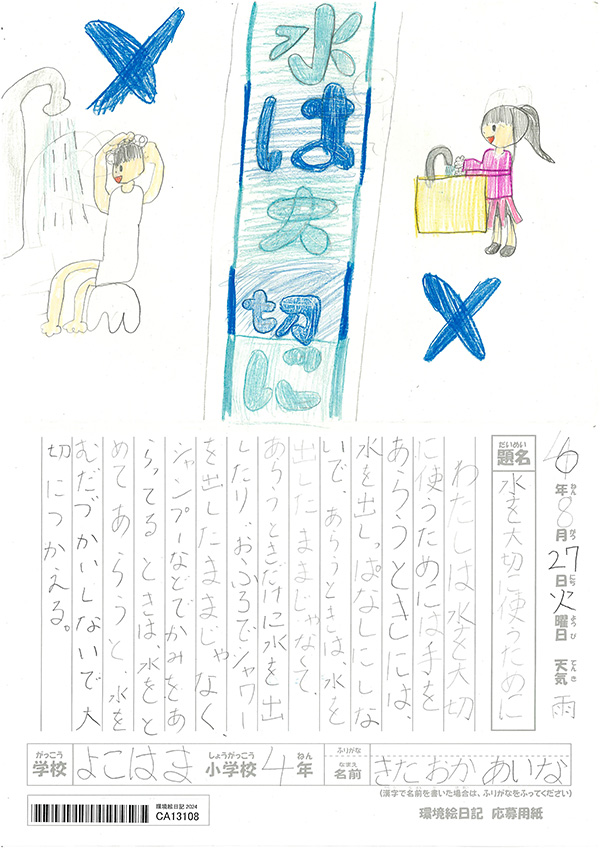 水は大切に
だいめい
題名
水を大切に使うために
4年8月27日火曜日 天気 雨
ねん がつ にち ようび てんき
わたしは水を大切
に使うためには手を
あらうときには、
水を出しっぱなしにしな
いで、あらうときは、水を
出したままじゃなくて、
あらうときだけに水を出
したり、おふろでシャワー
を出したままじゃなく、
シャンプーなどでかみをあ
らってるときは、水をと
めてあらうと、水を
むだづかいしないで大
切につかえる。
がっこう しょうがっこう ねん
学校 よこはま 小学校 4年
ふりがな
なまえ
名前 きたおか あいな
(漢字で名前を書いた場合は、ふりがなをふってください)
環境絵日記 2024
CA13108
環境絵日記 応募用紙